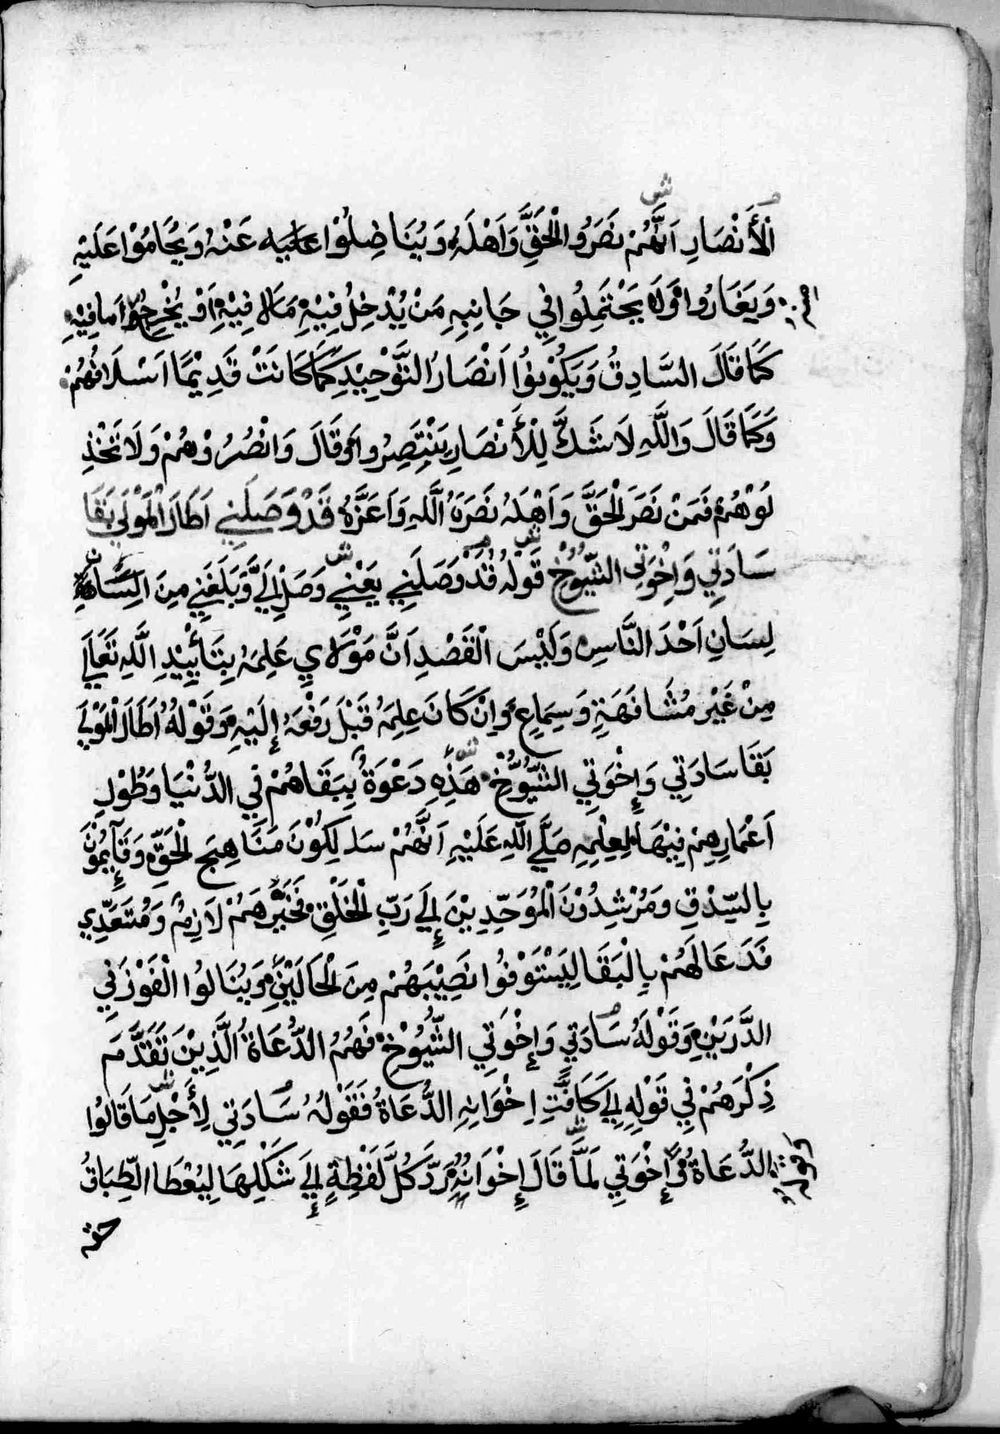 ش
الْأَنْصَارِ اَنَّهُمْ نَصَرُوا الْحَقَّ وَاَهْلَهُ وَيُنَاضِلُوْا عَنْهُ وَيُحَامُوْا عَلَيْهِ
وَيَغَارُوا وَلَا يَحْتَمِلُوا فِي جَانِبِهِ مَنْ يُدْخِلُ فِيْهِ مَا لَا فِيْهِ اَوْ يُخْرِجُ مَا فِيْهِ
كَمَا قَالَ السَّادِقُ وَيَكُوْنُوْا اَنْصَارُ التَّوْحِيْدِ كَمَا كَانَتْ قَدِيْمًا اَسْلَافُهُمْ
وَكَمَا قَالَ وَاللَّهِ لَا شَكَّ لِلْأَنْصَارِ يَنْتَصِرُوا وَقَالَ وَانْصُرُوْهُمْ وَلَا تَخْذِ
لُوْهُمْ فَمَنْ نَصَرَ الْحَقَّ وَاَهْلَهُ نَصَرَهُ اللَّهِ وَاَعَزَّهُ قَدْ وَصَلَنِي اَطَالَ الْمَوْلَى بَقَا
سَادَتِي وَاِخْوَتِي الشُّيُوْخِ قَوْلُهُ قَدْ وَصَلَنِي يَعْنِي وَصَلَ اِلَيَّ وَبَلَغَنِي مِنَ
لِسَانِ اَحْدَ النَّاسِ وَلَيْسَ الْقَصْدِ اَنَّ مَوْلَايِ عَلِمَهُ بِتَأْيِيْدِ اللَّهِ تَعَالَى
مِنْ غَيْرِ مُشَافَهَةٍ وَسِمَاعٍ وَاِنْ كَانَ عِلِمَهُ قَبْلَ رَفْعَهُ اِلَيْهِ وَقَوْلُهُ اَطَالَ الْمَوْلَى
بَقَا سَادَتِي وَاِخْوَتِي الشُّيُوْخِ ش هَذِهِ دَعْوَةٌ بِبَقَاهُمْ فِي الدُّنْيَا وَطُوْلِ
اَعْمَارِهِمْ فِيْهَا لِعِلْمِهِ صَلَّى اللَّهِ عَلَيْهِ اَنَّهُمْ سَالِكُوْنَ مَنَاهِجَ الْحَقِّ وَقَآئِمُوْنَ
بِالسِّدْقِ وَمُرْشِدُوْنَ الْمُوَحِّدِيْنَ اِلَى رَبِّ الْخَلْقِ فَخَيْرُهُمْ لَازِمٌ وَمُتَعَدِّي
فَدَعَا لَهُمْ بِالْبَقَا لِيَسْتَوْفُوا نَصِيْبَهُمْ مِنَ الْحَالَيْنِ وَيَنَالُوا الْفَوْزَ فِي
الدَّرَيْنِ وَقَوْلَهُ سَادَتِي وَاِخْوَتِي الشُّيُوْخْ فَهُمُ الدُّعَاةُ الَّذِيْنَ تَقَدَّمَ
ذِكْرَهُمْ فِي قَوْلِهِ اِلَى كَافَّتِ اِخْوَانِهِ الدُّعَاةُ فَقَوْلُهُ سَادَتِي لِأَجْلِ مَا قَالُوا
الدُّعَاةُ وَاِخْوَتِي لَمَّا قَالَ اِخْوَانِهِ رَدَّ كُلَّ لَفْظَةٍ اِلَى شَكْلِهَا لِيُعْطَا الطِّبَاقُ
وقوله
حقه